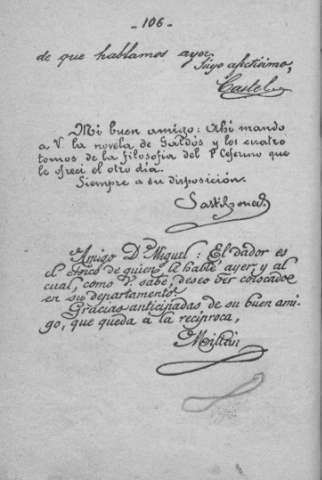 - 106 -
de que hablamos ayer.
Suyo afectísimo,
Castel
Mi buen amigo: Ahí mando
a V. la novela de Galdós y los cuatro
tomos de la filosofía del P. Ceferino que
le ofrecí el otro día.
Siempre a su disposición.
Amigo D. Miguel: El dador es
el chico de quien le hablé ayer, y al
cual, como V. sabe, deseo ver colocado
en su departamento.
Gracias anticipadas de su buen ami-
go, que queda á la recíproca,